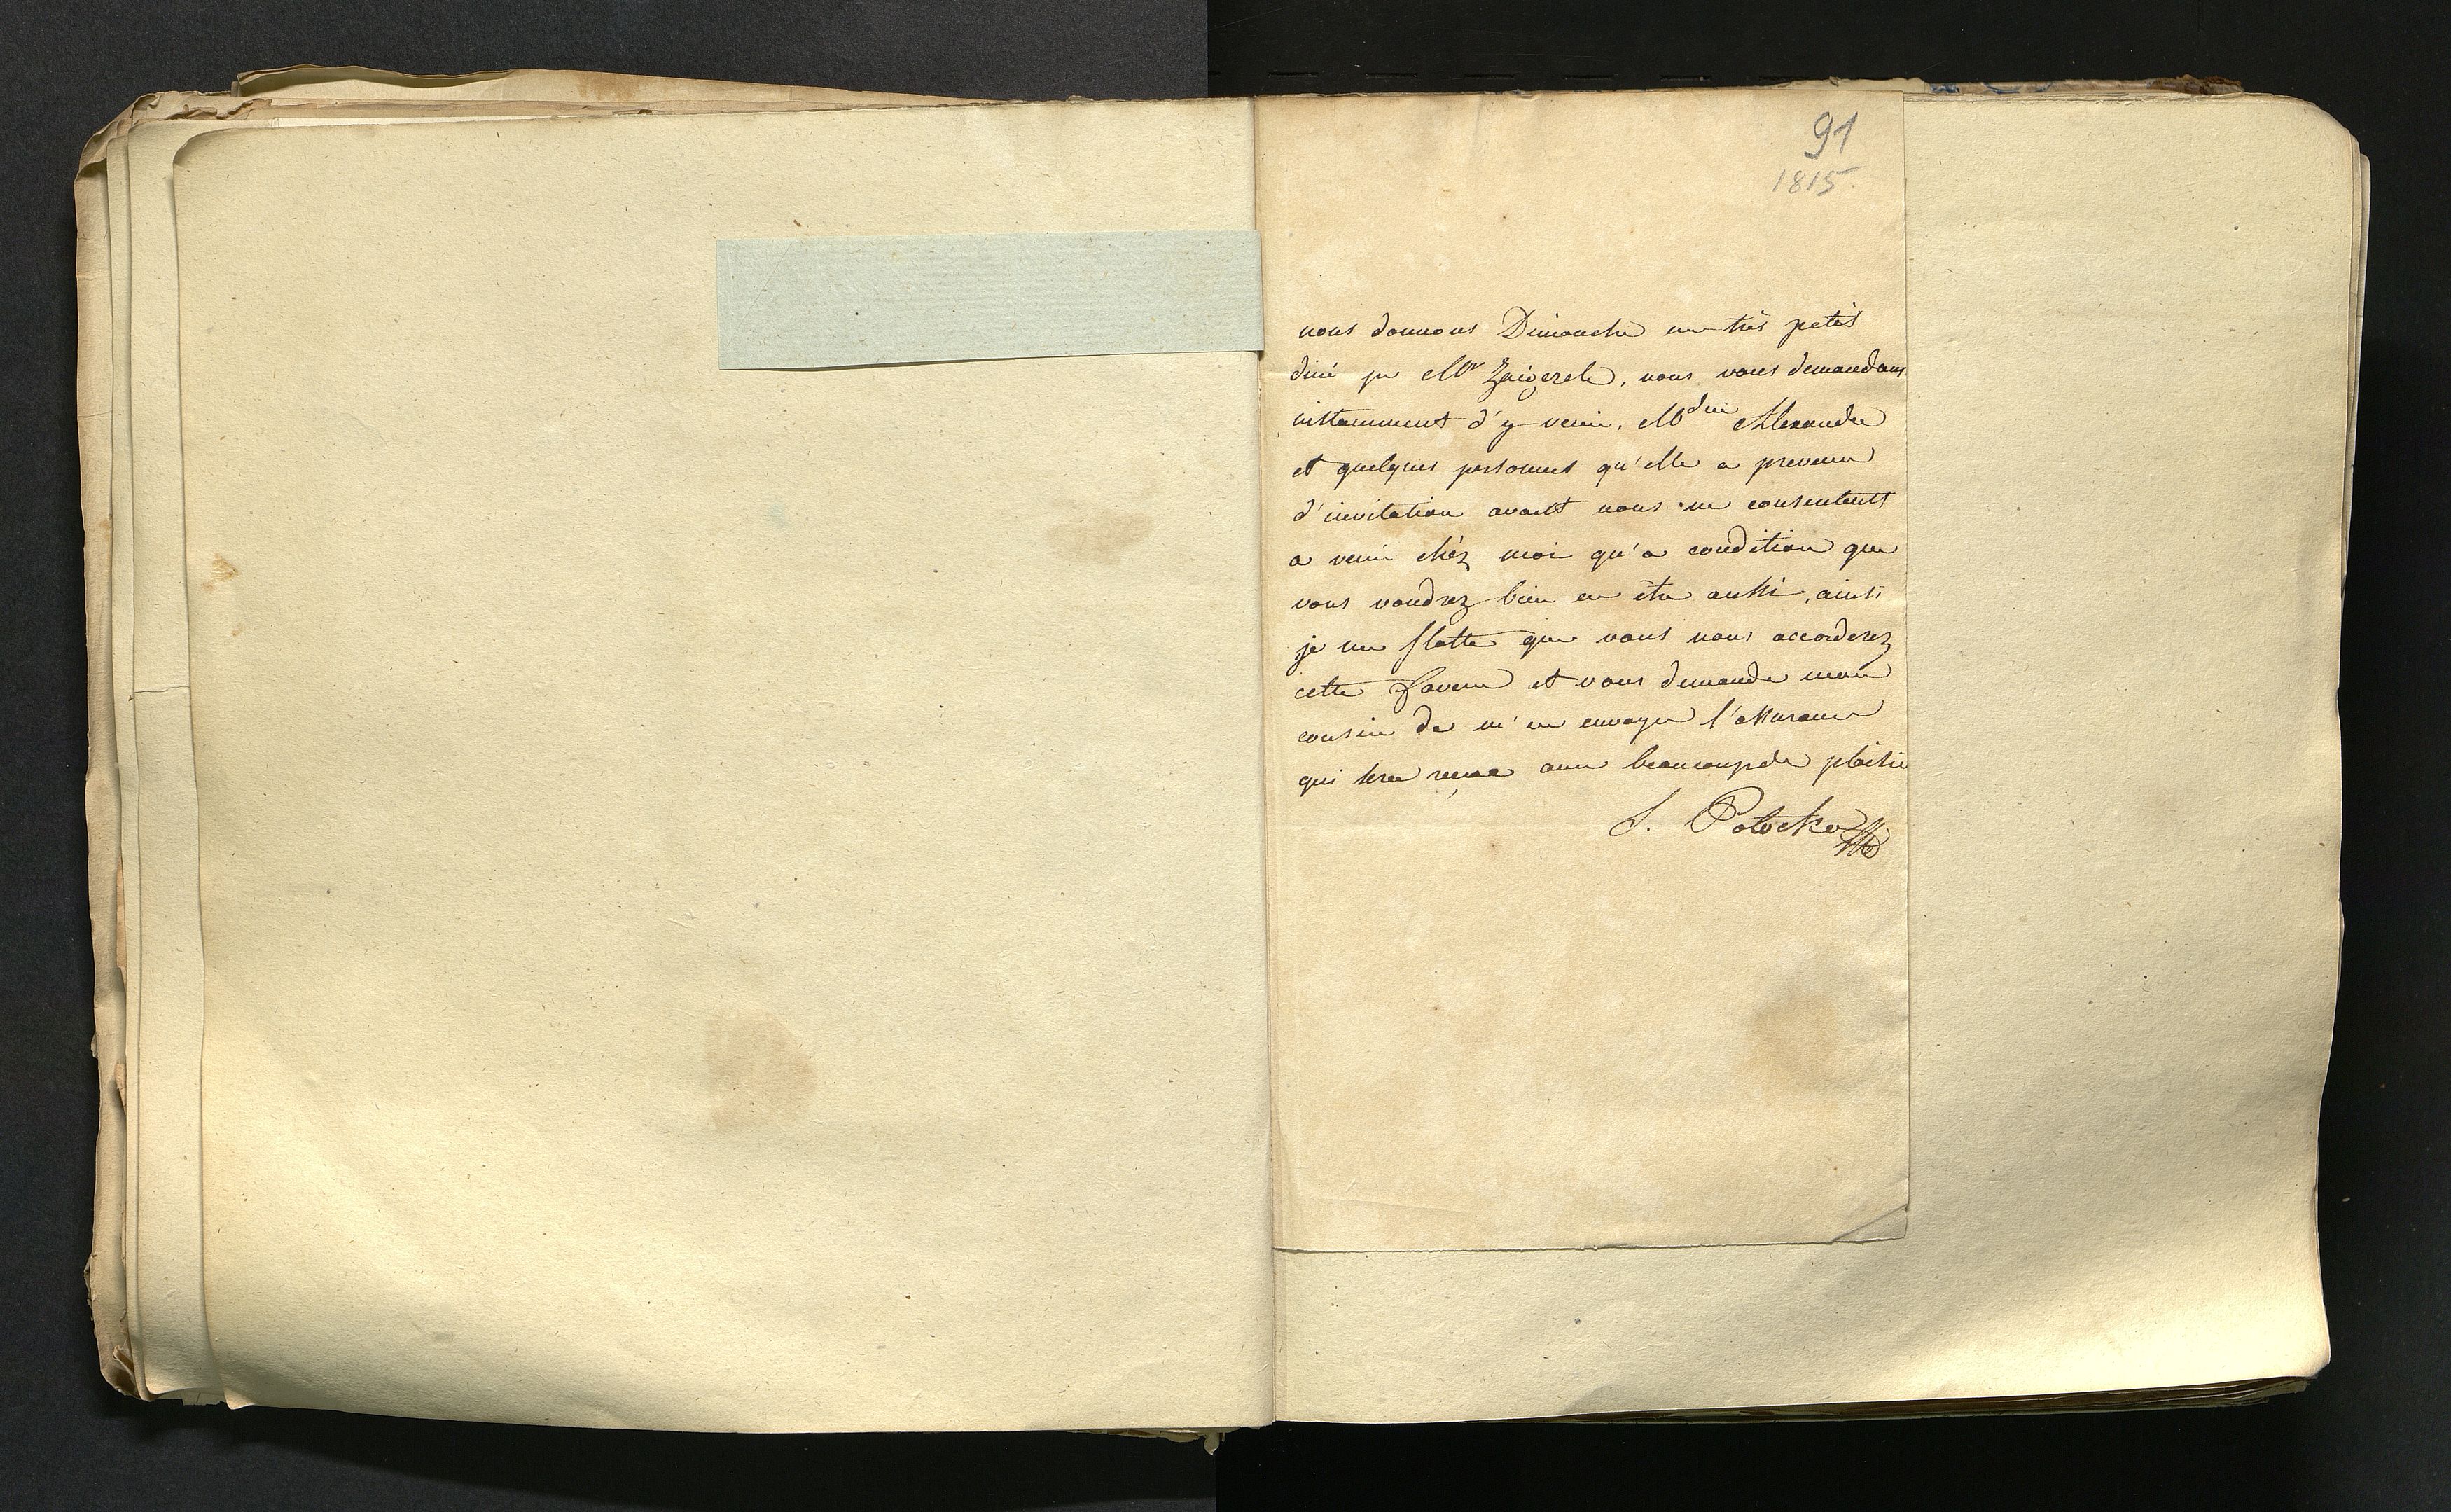 91
1815.
nous donnons Dimanche un très petit
diné pr Mr, nous vous demandons
instamment d'y venir, Mdme Alexandre
et quelques personnes qu'elle a prevenu
d'invitation avant nous ne consentent
a venir chéz moi qu'a condition que
vous voudrez bien en être aussi, ainsi
je me flatte que vous nous accorderez
cette faveur et vous demande mon
cousin de m'en envoyer l'assurance
qui sera reçue avec beaucoup de plaisir
S. Potocka